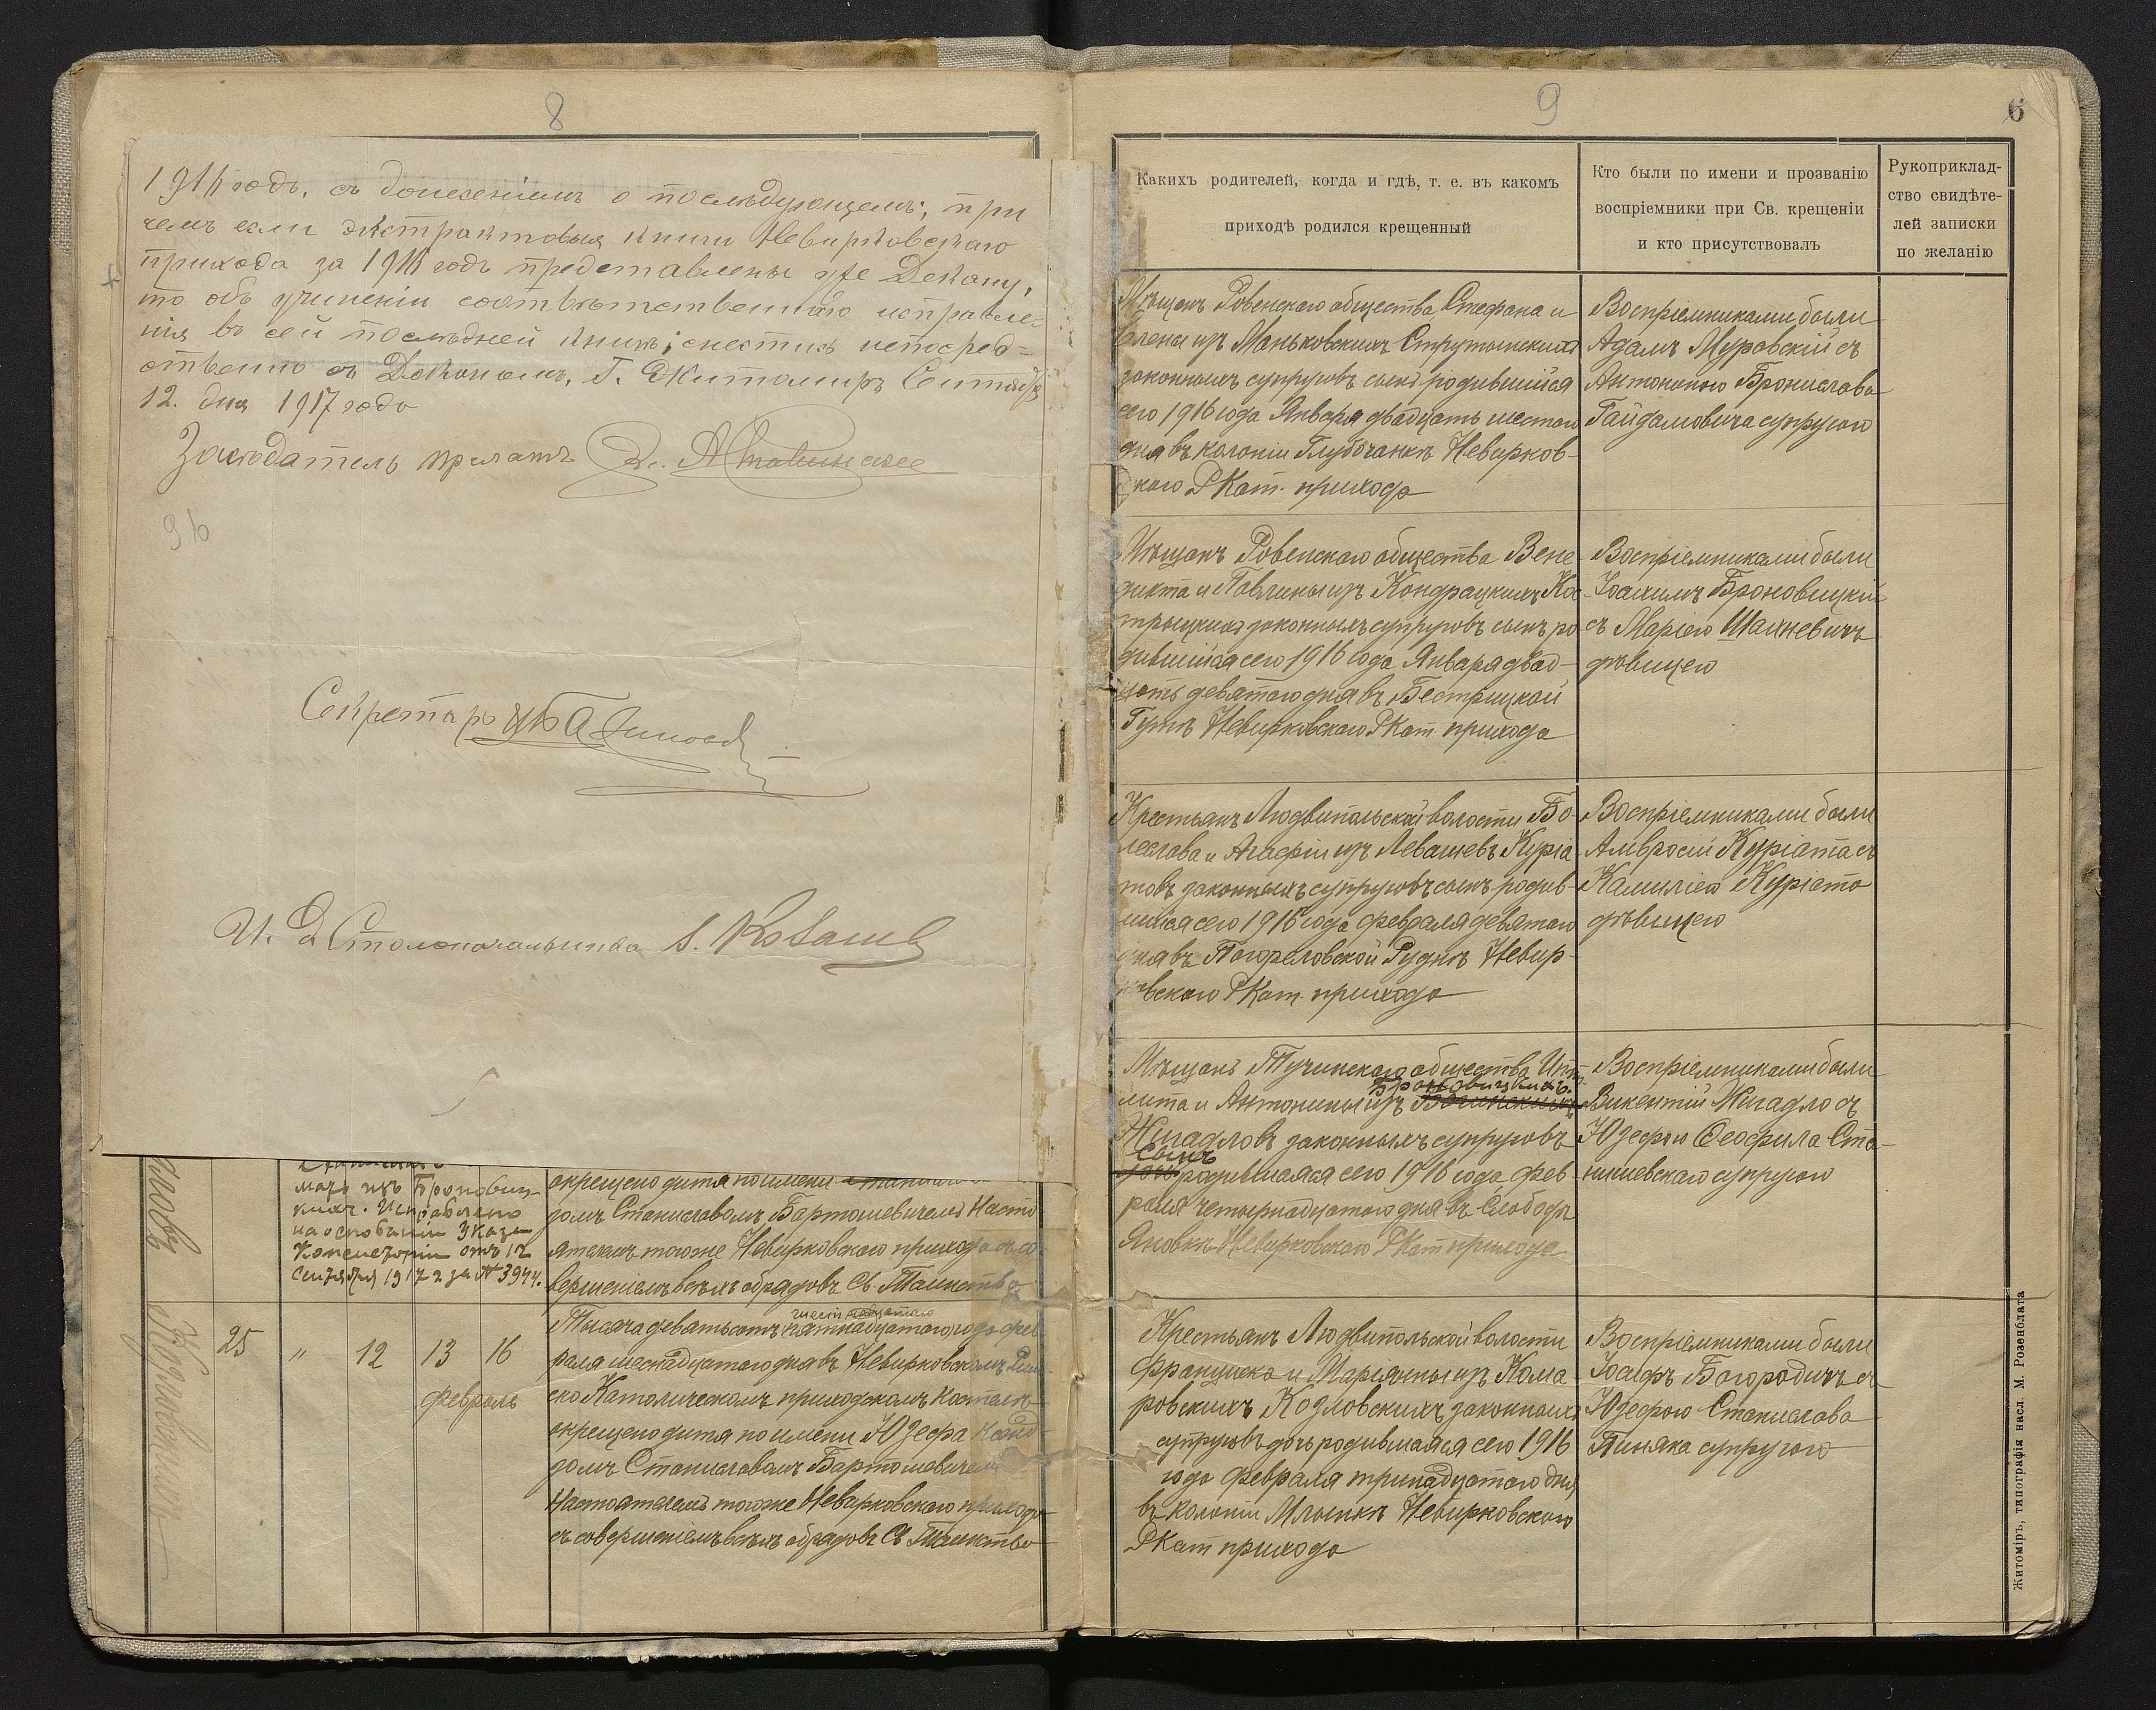 8
1916 годъ, съ донесеніемъ о послѣдующемъ; при
чемъ если экстрактовыя книги Невирковскаго
прихода за 1916 годъ представлены уже Декану,
то объ учиненіи соотвѣтственнаго исправле-
нія въ сей послѣдней книгѣ, снестись непосред-
ственно съ Деканомъ. Г. Житомиръ Сентября
12 дня 1917 года
Засѣдатель прелатъ
Секретарь
И. Д. Столоначальника
маго изъ Броновиц-
кихъ. Исправлено
на основаніи Указа
Консисторіи отъ 12
Сентября 1917 г за № 3944.
окрещено дитя по имени
домъ Станиславомъ Бартошевичемъ Насто
ятелемъ тогоже Невирковскаго прихода съ со-
вершеніемъ всѣхъ обрядовъ Св. Таинства
25 " 12 13 16
февраль
Козловская
шестнадцатаго
Тысяча девятьсотъ пятнадцатаго года фев-
раля шестнадцатаго дня въ Невирковскомъ Рим
ско Католическомъ приходскомъ костелѣ
окрещено дитя по имени Юзефа Ксенд-
зомъ Станиславомъ Бартошевичемъ
Настоятелемъ тогоже Невирковскаго прихода
съ совершеніемъ всѣхъ обрядовъ Св Таинства
9
6
Какихъ родителей, когда и гдѣ, т. е. въ какомъ
приходѣ родился крещенный
Кто были по имени и прозванію
воспріемники при Св. крещеніи
и кто присутствовалъ
Рукоприклад-
ство свидѣте-
лей записки
по желанію
Мѣщанъ Ровенскаго общества Стефана и
Елены изъ Маньковскихъ Струтынскихъ
законныхъ супруговъ сынъ родившійся
сего 1916 года Января двадцать шестаго
дня въ колоніи Глубочанкѣ Невирков-
скаго РКат. прихода
Воспріемниками были
Адамъ Муравскій съ
Антониною Бронислава
Гайдамовича супругою
Мѣщанъ Ровенскаго общества Бене
дикта и Павлины изъ Кондрацкихъ Ко
трыцкихъ законныхъ супруговъ сынъ ро
дившійся сего 1916 года Января двад-
цать девятаго дня въ Бестрицкой
Гутѣ Невирковскаго РКат. прихода
Воспріемниками были
Іоахимъ Броновицкій
съ Маріею Шахневичъ
дѣвицею
Крестьянъ Людвипольской волости Бо-
леслава и Агафіи изъ Левашевъ Куріа
товъ законныхъ супруговъ сынъ родив-
шійся сего 1916 года февраля девятаго
дня въ Погореловской Руднѣ Невир-
ковскаго РКат. прихода
Воспріемниками были
Амвросій Куріата съ
Камиліею Куріата
дѣвицею
Мѣщанъ Тучинскаго общества Ипо-
Броновицкихъ.
лита и Антонины изъ
Жигадловъ законныхъ супруговъ
сынъ
дочь родившаяся сего 1916 года фев
раля четырнадцатаго дня въ Слободѣ
Яновкѣ Невирковскаго РКат прихода
Воспріемниками были
Викентій Жигадло съ
Юзефою Феофила Ста-
нишевскаго супругою
Крестьянъ Людвипольской волости
Франциска и Маріанны изъ Кома
ровскихъ Козловскихъ законныхъ
супруговъ дочь родившаяся сего 1916
года февраля тринадцатаго дня
въ колоніи Млынкѣ Невирковскаго
РКат прихода
Воспріемниками были
Іосифъ Багородичъ съ
Юзефою Станислава
Пиняка супругою
Житомiръ, типографія насл. М. Розенблата